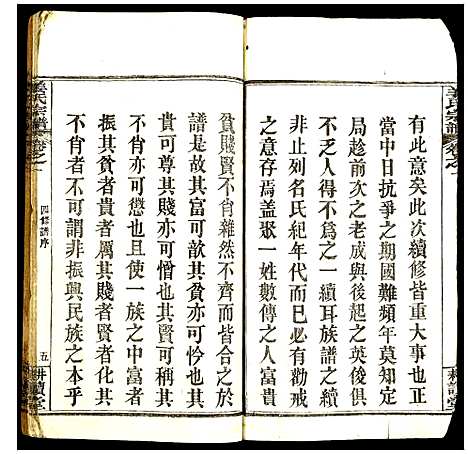 有此意矣此次續修皆重大事也正
當中日抗爭之期國難頻年莫知定
局趁前次之老成與後起之英俊俱
不乏人得不爲之一續耳族譜之續
非止列名氏紀年代而已必有勸戒
之意存焉盖聚一姓數傳之人富貴
貧賤賢不肖雜然不齊而皆合之於
譜故其富可欽也其貧亦可怜也其
貴可尊其賤亦可憎也其賢可稱其
不肖亦可愍也且使一族之中富者
振其貧者貴者厲其賤者賢者化其
不肖者不可謂非振興民族之本乎
姜氏宗譜
卷之一
四修譜序
五
耕讀堂